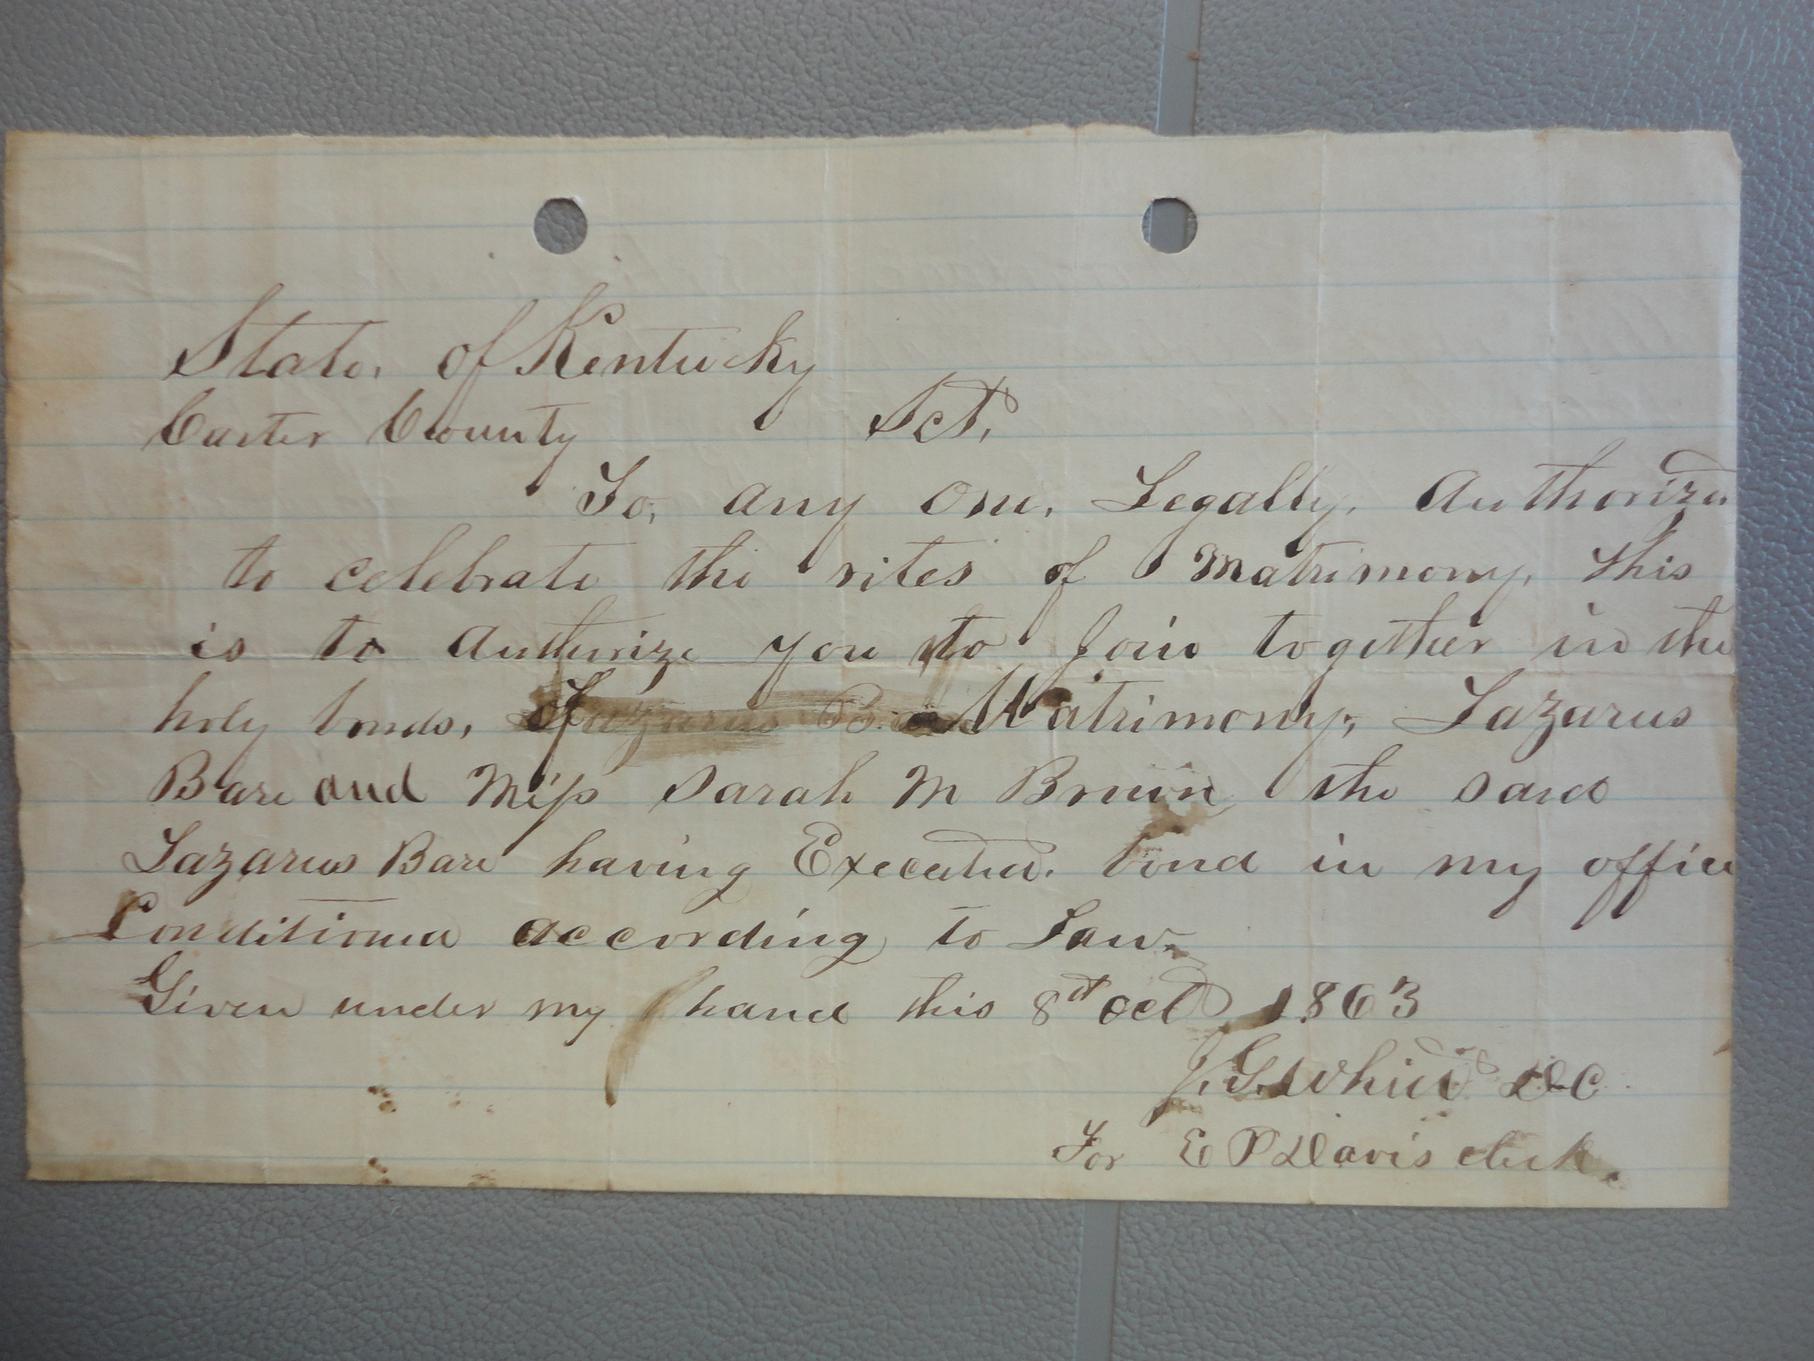 State, of Kentucky
Carter County Sct,
To, any one, Legally, Authorized
to celebrate the rites of Matrimony, this
is to Autherize you to Join together in the
holy bonds, of Matrimony, Lazarus
Bare and Miss Sarah M the said
Lazarus Bare having Executed. bond in my office
Conditioned according to Law.
Given under my hand this 8th Oct 1863
J. G. DC
For E P Davis clerk.